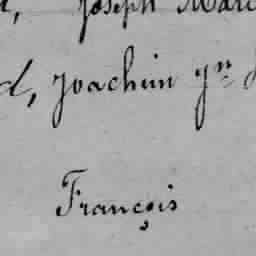 Joseph
d, Joachim Jn
François